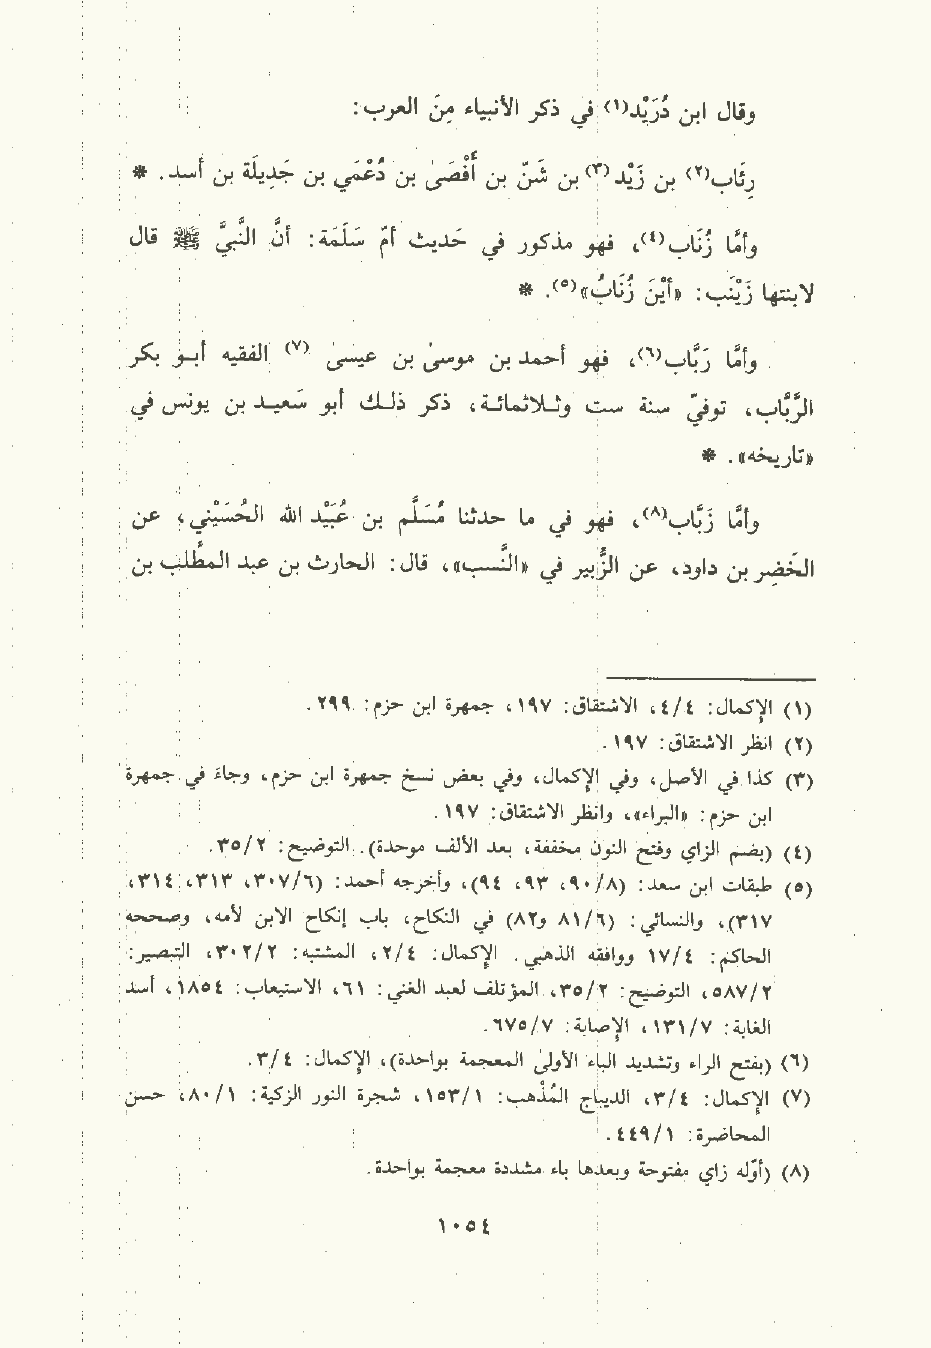 وقال ابن دُرَيْد(١) في ذكر الأنبياء مِنَ العرب:
رِئَاب(٢) بن زَيْد(٣) بن شَنّ بن أَفْصَىٰ بن دُعْمَي بن جَدِيلَة بن أسد. *
وأمَّا زُنَاب(٤)، فهو مذكور في حَديث أمّ سَلَمَة: أنَّ النَّبيَّ ﷺ قال
لابنتها زَيْنَب: «أَيْنَ زُنَابُ»(٥). *
وأمَّا رَبَّاب(٦)، فهو أحمد بن موسىٰ بن عيسىٰ (٧) الفقيه أبو بكر
الرَّبَّاب، توفيّ سنة ست وثلاثمائة، ذكر ذلك أبو سَعيد بن يونس في
«تاريخه». *
وأمَّا زَبَّاب(٨)، فهو في ما حدثنا مُسَلَّم بن عُبَيْد الله الحُسَيْني، عن
الخَضِر بن داود، عن الزُّبير في «النَّسب»، قال: الحارث بن عبد المطَّلب بن
(١) الإكمال: ٤/٤، الاشتقاق: ١٩٧، جمهرة ابن حزم: ٢٩٩.
(٢) انظر الاشتقاق: ١٩٧.
(٣) كذا في الأصل، وفي الإكمال، وفي بعض نسخ جمهرة ابن حزم، وجاءَ في جمهرة
ابن حزم: «البراء»، وانظر الاشتقاق: ١٩٧.
(٤) (بضم الزاي وفتح النون مخففة، بعد الألف موحدة). التوضيح: ٣٥/٢.
(٥) طبقات ابن سعد: (٩٠/٨، ٩٣، ٩٤)، وأخرجه أحمد: (٣٠٧/٦، ٣١٣، ٣١٤،
٣١٧)، والنسائي: (٨١/٦ و٨٢) في النكاح، باب إنكاح الابن لأمه، وصححه
الحاكم: ١٧/٤ ووافقه الذهبي. الإكمال: ٢/٤، المشتبه: ٣٠٢/٢، التبصير:
٥٨٧/٢، التوضيح: ٣٥/٢، المؤتلف لعبد الغني: ٦١، الاستيعاب: ١٨٥٤، أسد
الغابة: ١٣١/٧، الإصابة: ٦٧٥/٧.
(٦) (بفتح الراء وتشديد الباء الأولىٰ المعجمة بواحدة)، الإكمال: ٣/٤.
(٧) الإكمال: ٣/٤، الديباج المُذْهب: ١٥٣/١، شجرة النور الزكية: ٨٠/١، حسن
المحاضرة: ٤٤٩/١.
(٨) (أوّله زاي مفتوحة وبعدها باء مشددة معجمة بواحدة.
١٠٥٤